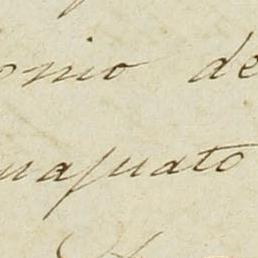 onio de
uajuato